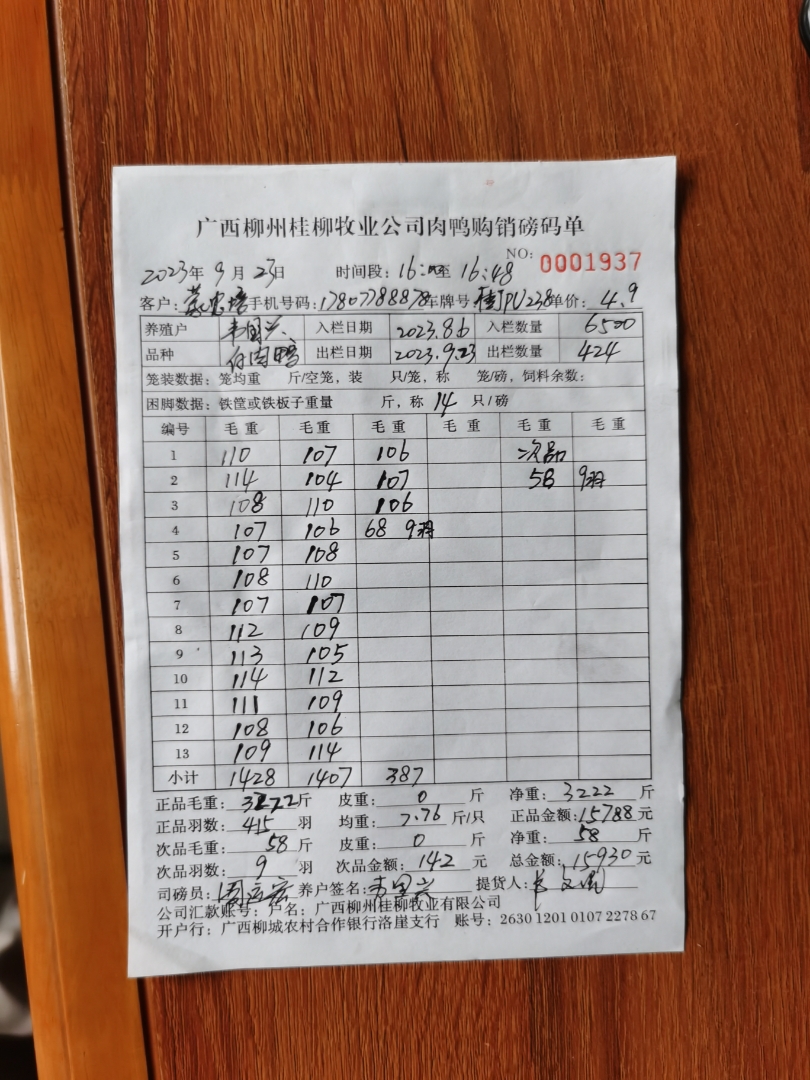 广西柳州桂柳牧业公司肉鸭购销磅码单
NO: 0001937
2023年 9月 23日 时间段: 16: 至 16:48
客户: 手机号码: 17807788878 车牌号 桂PU238 单价: 4.9
养殖户 韦国兴 入栏日期 2023.8.6 入栏数量 6500
品种 白肉鸭 出栏日期 2023.9.23 出栏数量 424
笼装数据: 笼均重 斤/空笼, 装 只/笼, 称 笼/磅, 饲料余数:
困脚数据: 铁筐或铁板子重量 斤, 称 14 只/磅
编号 毛重 毛重 毛重 毛重 毛重 毛重
1 110 107 106 次品
2 114 104 107 58 9羽
3 108 110 106
4 107 106 68 9羽
5 107 108
6 108 110
7 107 107
8 112 109
9 113 105
10 114 112
11 111 109
12 108 106
13 109 114
小计 1428 1407 387
正品毛重: 3222 斤 皮重: 0 斤 净重: 3222 斤
正品羽数: 415 羽 均重: 7.76 斤/只 正品金额: 15788 元
次品毛重: 58 斤 皮重: 0 斤 净重: 58 斤
次品羽数: 9 羽 次品金额: 142 元 总金额: 15930 元
司磅员: 养户签名: 韦国兴 提货人:
公司汇款账号: 户名: 广西柳州桂柳牧业有限公司
开户行: 广西柳城农村合作银行洛崖支行 账号: 2630 1201 0107 2278 67